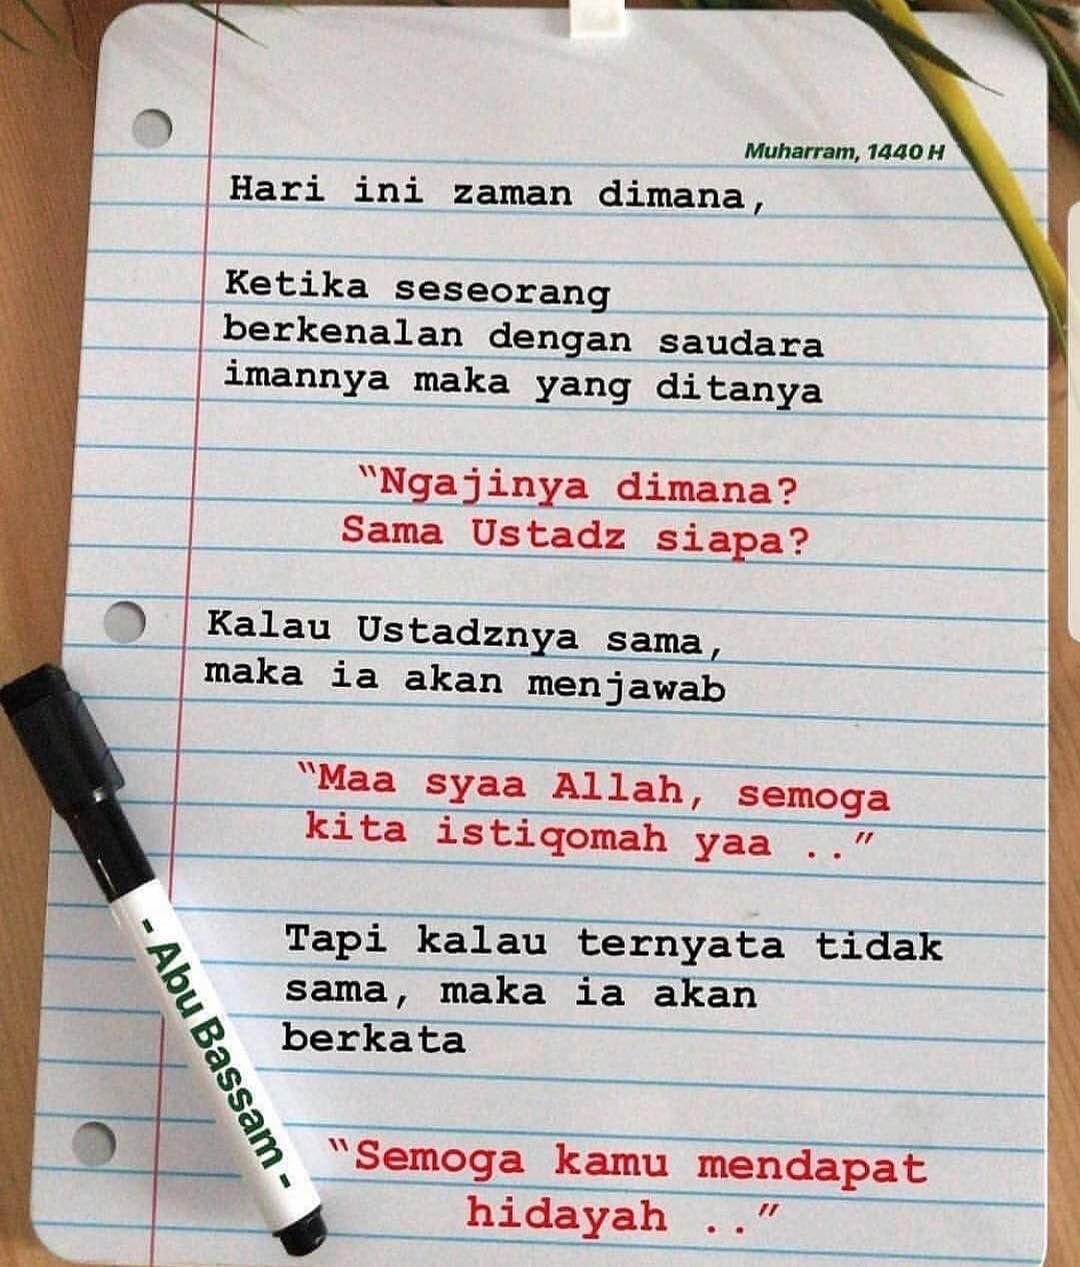 Muharram, 1440 H
Hari ini zaman dimana,
Ketika seseorang
berkenalan dengan saudara
imannya maka yang ditanya
"Ngajinya dimana?
Sama Ustadz siapa?
Kalau Ustadznya sama,
maka ia akan menjawab
"Maa syaa Allah, semoga
kita istiqomah yaa .."
Tapi kalau ternyata tidak
sama, maka ia akan
berkata
"Semoga kamu mendapat
hidayah .."
- Abu Bassam -